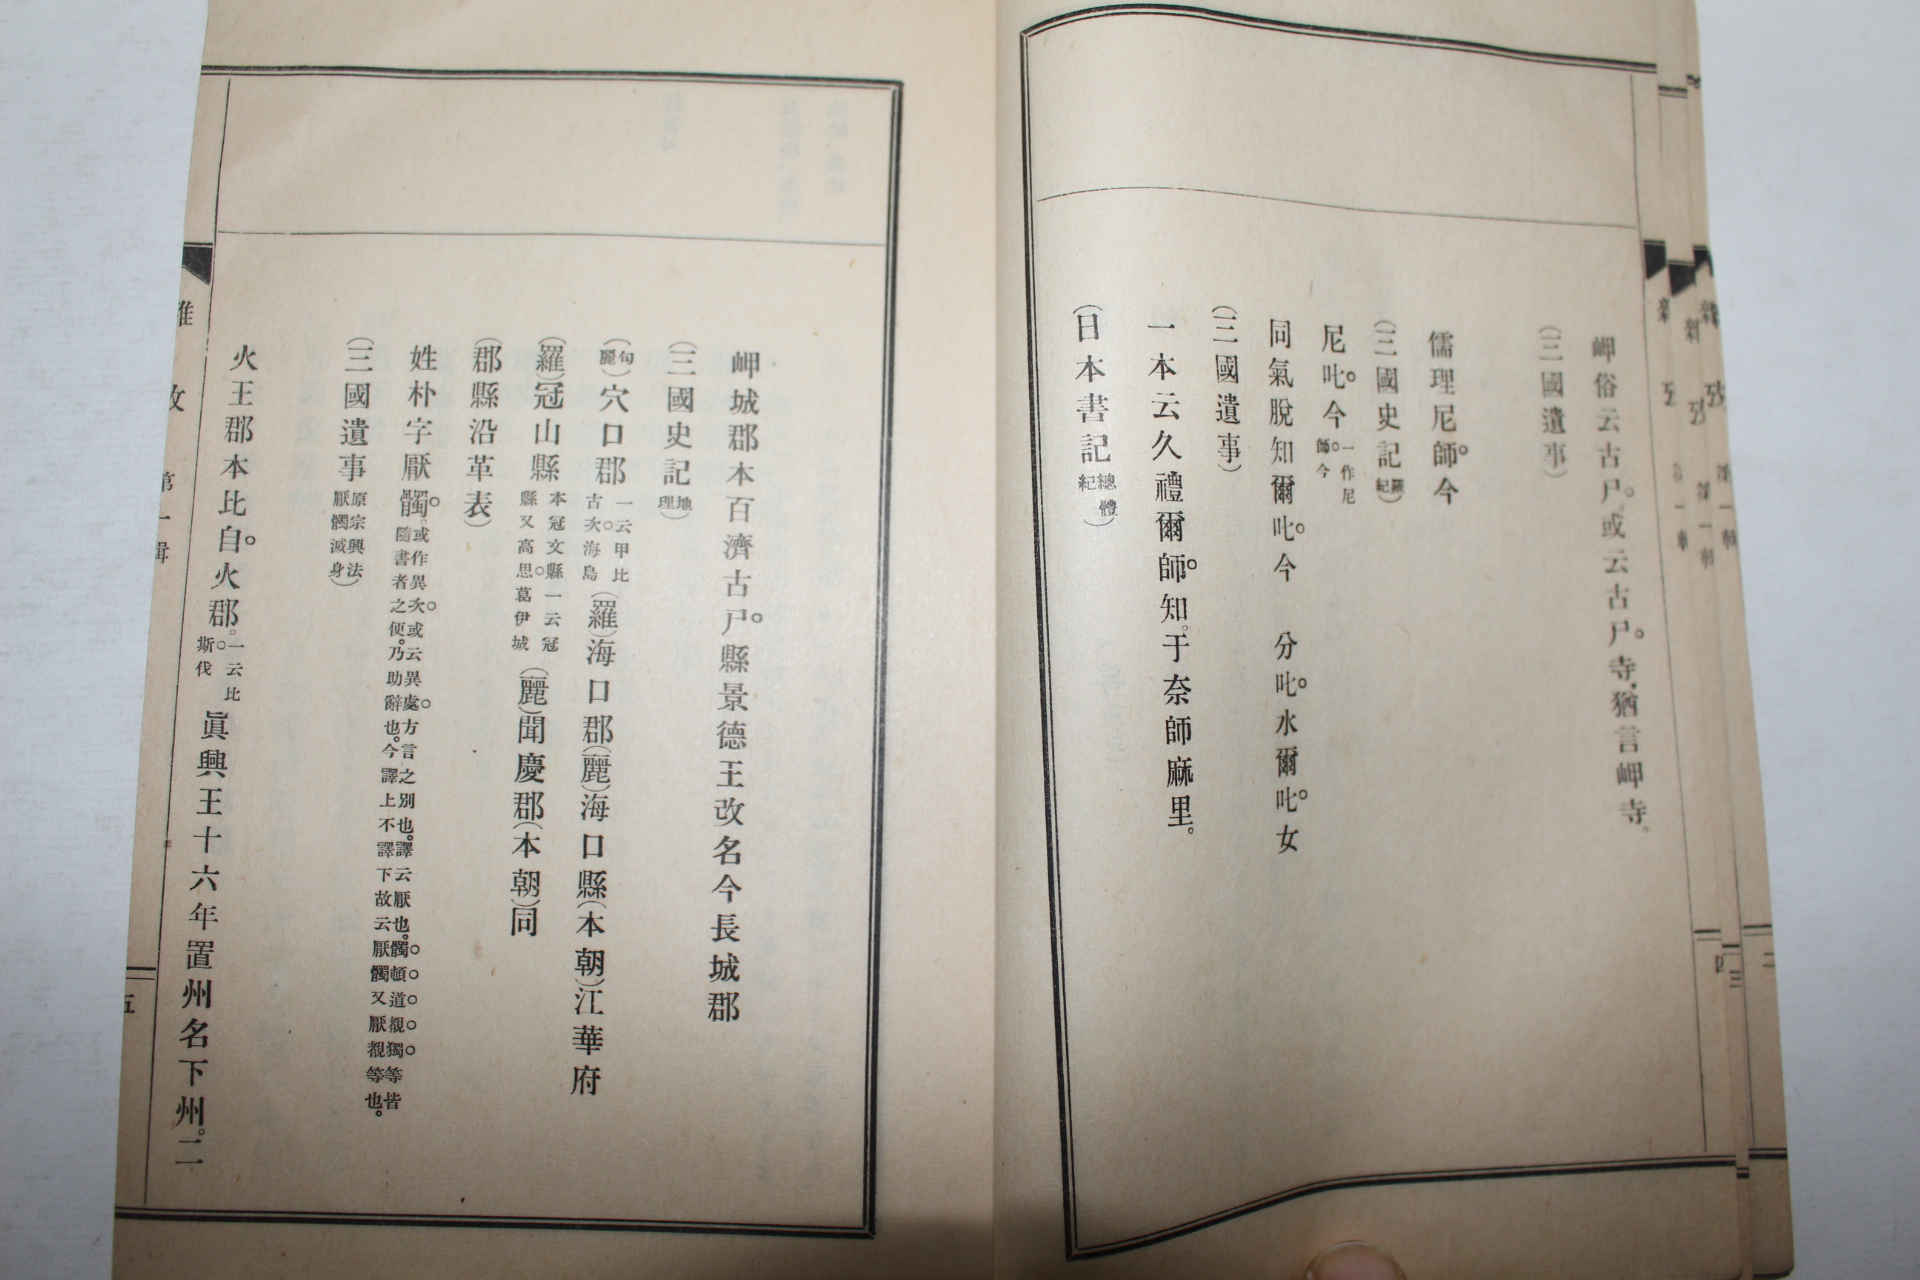 岬俗云古尸。或云古尸寺、猶言岬寺。
(三國遺事)
儒理尼師今
(三國史記羅紀)
尼叱今一作尼師今
同氣脫知爾叱今　分叱水爾叱女
(三國遺事)
一本云久禮爾師知。于奈師麻里。
(日本書記總體紀)
岬城郡本百濟古尸縣景德王改名今長城郡
(三國史記地理)
(句麗)穴口郡一云甲比古次海島(羅)海口郡(麗)海口縣(本朝)江華府
(羅)冠山縣本冠文縣一云冠縣又高思葛伊城(麗)聞慶郡(本朝)同
(郡縣沿革表)
姓朴字厭髑。或作異次或云異處方言之別也。譯云厭也。髑頓道覩獨等皆隨書者之便。乃助辭也。今譯上不譯下故云厭髑又厭覩等也。
(三國遺事原宗興法厭髑滅身)
火王郡本比自火郡。一云比斯伐眞興王十六年置州名下州。二
第一輯
五